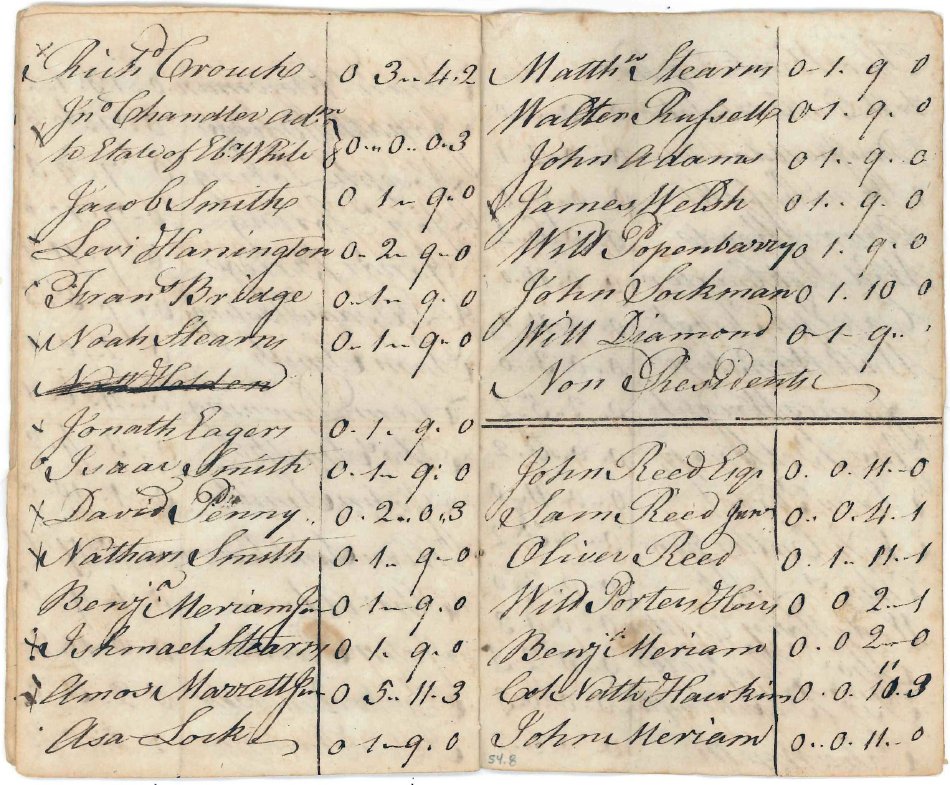 x Richd Crouch 0 3 " 4 . 2
Jno Chandler Adm
to Etate of Ebr White } 0 " 0 . 0 . 3
Jacob Smith 0 1 " 9 . 0
Levi Harrington 0 . 2 " 9 . 0
Frans Bridge 0 . 1 " 9 . 0
Noah Stearns 0 . 1 " 9 . 0
Holden
x Jonath Eagers 0 . 1 . 9 . 0
Isaac Smith 0 . 1 " 9 : 0
x David Penny 0 . 2 " 0 " 3
x Nathan Smith 0 . 1 " 9 . 0
Benja Meriam Jun 0 1 " 9 . 0
x Ishmael Stearns 0 1 . 9 . 0
Amos Marrett Jun 0 5 " 11 . 3
Asa Lock 0 1 " 9 . 0
Matthw Stearns 0 - 1 . 9 0
Walter Russell 0 1 . 9 . 0
John Adams 0 1 " 9 . 0
James Welsh 0 1 . 9 0
Will Popenbarry 0 1 . 9 . 0
John Sockman 0 1 . 10 0
Will Diamond 0 - 1 - 9
Non Residents
John Reed Esqr 0 . 0 . 11 - 0
Sam Reed Junr 0 . . 0 . 4 . 1
Oliver Reed 0 . 1 . 11 - 1
Will Porters Heirs 0 0 2 - 1
Benja Meriam 0 . 0 2 - 0
Col Nath Hawkins 0 . 0 . 10 . 3
John Meriam 0 . . 0 . 11 . 0
54.8